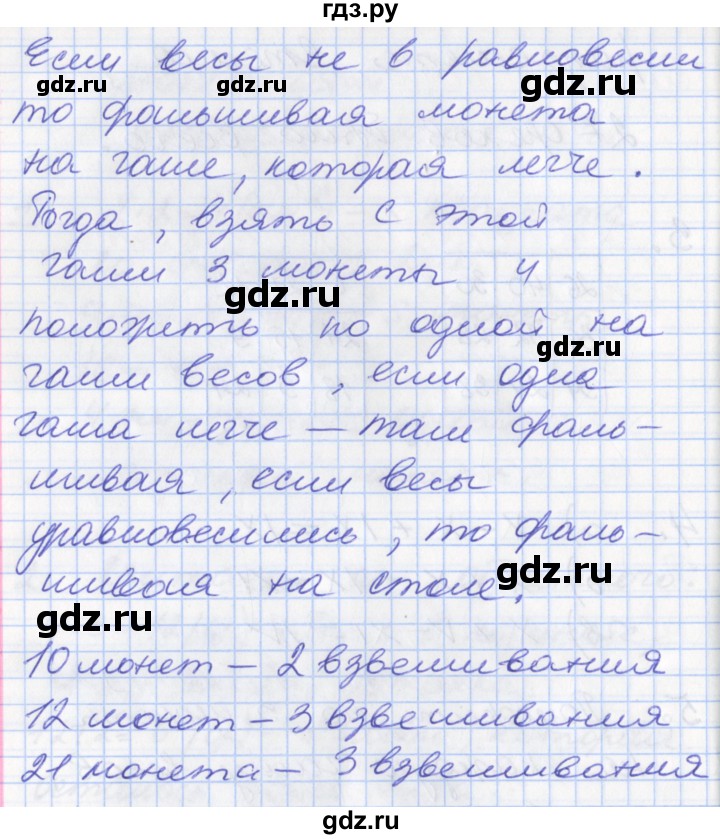 гдз.ру
Если весы не в равновесии
gdz.ru gdz.ru gdz.ru
то фальшивая монета
на чаше, которая легче.
Тогда, взять с этой
чаши 3 монеты и
gdz.ru
положить по одной на
gdz.ru
чаши весов, если одна
чаша легче – там фаль–
шивая, если весы
уравновесились, то фаль–
шивая на столе.
gdz.ru
gdz.ru
10 монет – 2 взвешивания
12 монет – 3 взвешивания
21 монета – 3 взвешивания